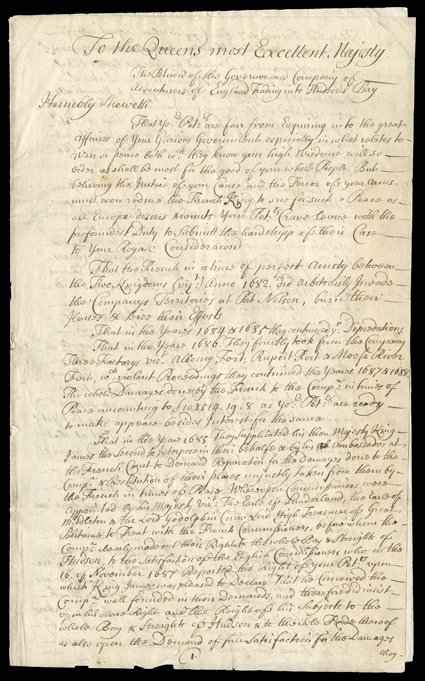 To the Queens most Excellent Majesty
The Petition of the Governor and Company of
Adventurers of England Trading into Hudsons Bay
Humbly Sheweth
That Yor Petrs are farr from Enquiring into the great
Affaires of Your Glorious Government especially in what relates to
Warr or peace both wch they know your high Wisdome will so
order as shall be most for the good of your whole People But
believing the Justice of your Cause and the Terror of your Arms
must soon reduce the French King to sue for such a Peace as
all Europe desires & wants Your Petrs Crave leave with the
profoundest Duty to Submitt the hardshipp of their Case
to Your Royall Consideracon
That the French in a time of perfect Amity between
the Two Kingdoms (vizt) Anno 1682 did Arbitrarily Invade
the Companys Territories at Port Nelson, burn their
Houses & Seize their Effects
That in the Years 1684 & 1685 they continued yr Depredations
That in the Year 1686 They forcibly took from the Company
Three Factorys vizt Albany Fort, Rupert Fort & Moose River
Fort, wch violent Proceedings they continued the Years 1687 & 1688
The whole Damages done by the French to the Compa in times of
Peace amounting to £108514. 19. 8 as Yor Petrs are ready
to make appear besides Interest for the same
That in the Year 1685 They Supplicated his then Majesty King
James the Second to Interpose in their behalfe & by his Ambassador at
the French Court to Demand Reparation for the Damages done to the
Compa & Restitution of their places unjustly taken from them by
the French in times of Peace Whereupon Commissioners were
Appointed by his Majesty vizt The Earle of Sunderland, the Earle of
Middleton & the Lord Godolphin (now Lord High Treasurer of Great
Brittaine to Treat with the French Commissioners, before whom the
Compa clearly made out their Right to the whole Bay & Streights of
Hudson, to the Satisfaction of the English Commissioners who on the
16 of November 1687 Reported the Right of your Petrs upon
which King James was pleased to Declare That he conceived the
Compa well founded in their Demands, and therefore did insist
upon his owne Right, and the Right of his Subjects to the
whole Bay & Streights of Hudson & to the Sole Trade thereof
as also upon the Demand of full Satisfaction for the Damages
they